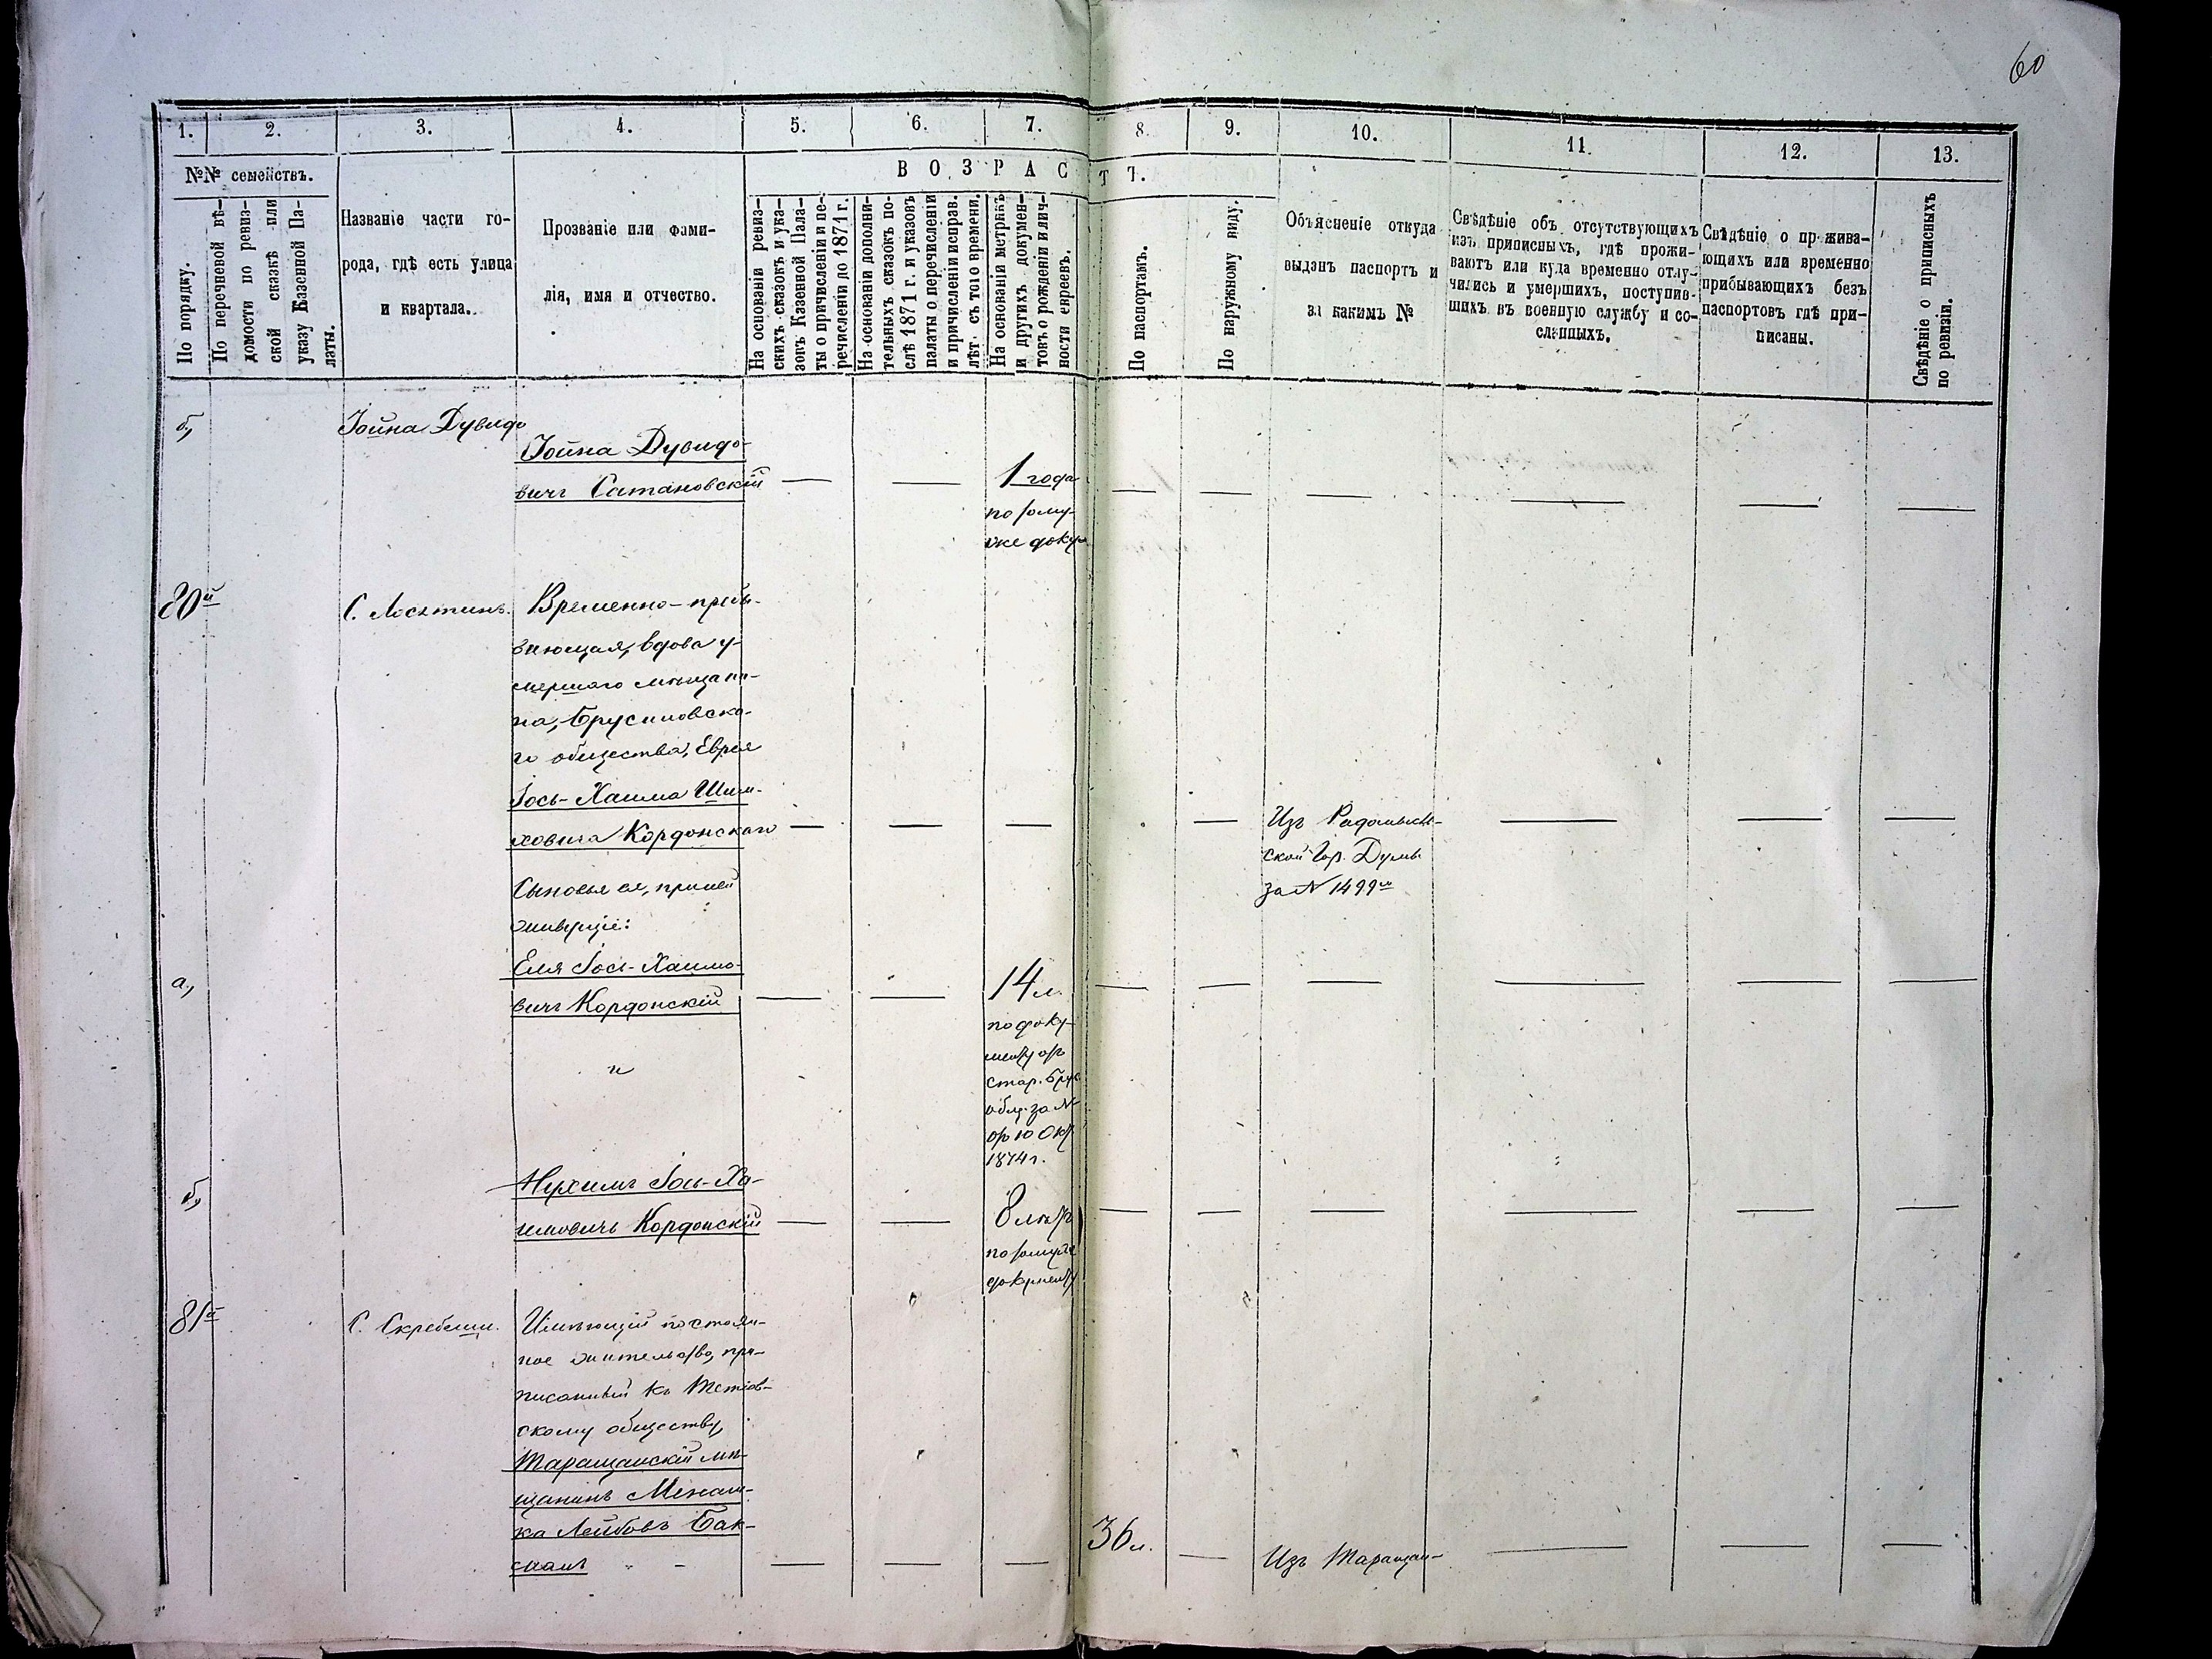 60
1. 2. 3. 4. 5. 6. 7. 8. 9. 10. 11. 12. 13.
№№ семействъ.
ВОЗРАСТЪ.
По порядку.
По перечневой вѣ-
домости по ревиз-
ской сказкѣ или
указу Казенной Па-
латы.
Названіе части го-
рода, гдѣ есть улица
и квартала.
Прозваніе или фами-
лія, имя и отчество.
На основаніи ревиз-
скихъ сказокъ и ука-
зовъ Казенной Пала-
ты о причисленіи и пе-
речисленіи до 1871 г.
На основаніи дополни-
тельныхъ сказокъ по-
слѣ 1871 г. и указовъ
палаты о перечисленіи
и причисленіи исправ.
лѣт. съ того времени.
На основаніи метрикъ
и другихъ докумен-
товъ о рожденіи и лич-
ности евреевъ.
По паспортамъ.
По наружному виду.
Объясненіе откуда
выданъ паспортъ и
за какимъ №
Свѣдѣніе объ отсутствующихъ
изъ приписныхъ, гдѣ прожи-
ваютъ или куда временно отлу-
чились и умершихъ, поступив-
шихъ въ военную службу и со-
сланныхъ.
Свѣдѣніе о прожива-
ющихъ или временно
прибывающихъ безъ
паспортовъ гдѣ при-
писаны.
Свѣдѣніе о приписныхъ
по ревизіи.
б,
Іойна Дувидо
Іойна Дувидо-
вичъ Сатановскій
1 года
по тому-
же докум
80й
С. Лосятинъ.
Временно-пребы-
вающая, вдова у-
мершаго мѣщани-
на, Брусиловска-
го общества, Еврея
Іось-Хаима Шим-
ховича Кордонскаго
Изъ Радомысль-
ской Гор. Думы
за № 1499м
Сыновья ея, при ней
живущіе:
а,
Еля Іось-Хаимо-
вичъ Кордонскій
14 л.
по доку-
менту отъ
стар. Брус
общ. за №
отъ 10 Окт.
1874 г.
и
б,
Нухимъ Іось-Ха-
имовичъ Кордонскій
8 лѣтъ
по томуже
документу
81й
С. Скребыши.
Имѣющій постоян-
ное жительство, при-
писанный къ Тетіев-
скому обществу,
Таращанскій мѣ-
щанинъ Менаш-
ка Лейбовъ Бак-
сманъ
36 л.
Изъ Таращан-